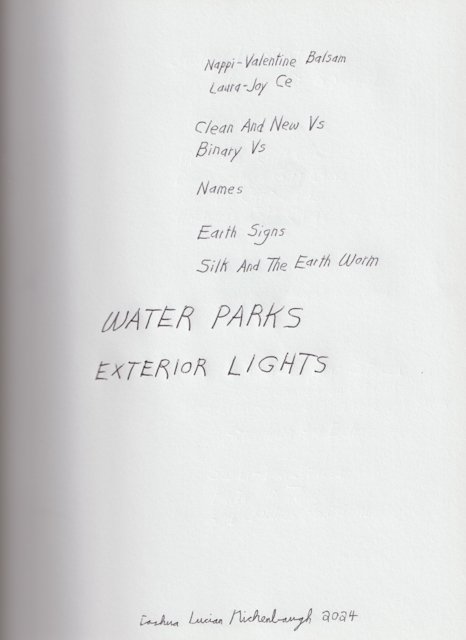 Nappi-Valentine Balsam
Laura-Joy Ce
Clean And New Vs
Binary Vs
Names
Earth Signs
Silk And The Earth Worm
WATER PARKS
EXTERIOR LIGHTS
Lucian 2024